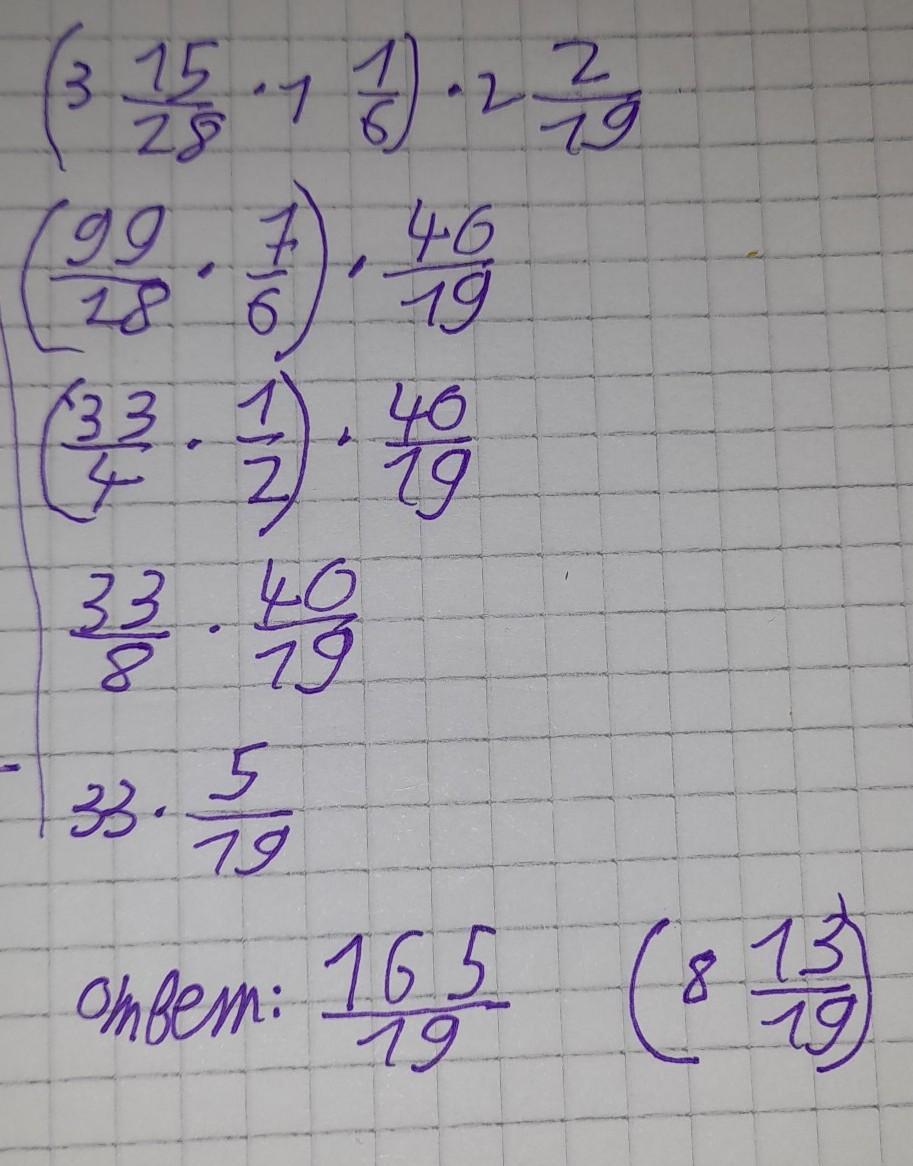 (3 15/28 · 1 1/6) · 2 2/19
(99/28 · 7/6) · 40/19
(33/4 · 1/2) · 40/19
33/8 · 40/19
33 · 5/19
ответ: 165/19 (8 13/19)